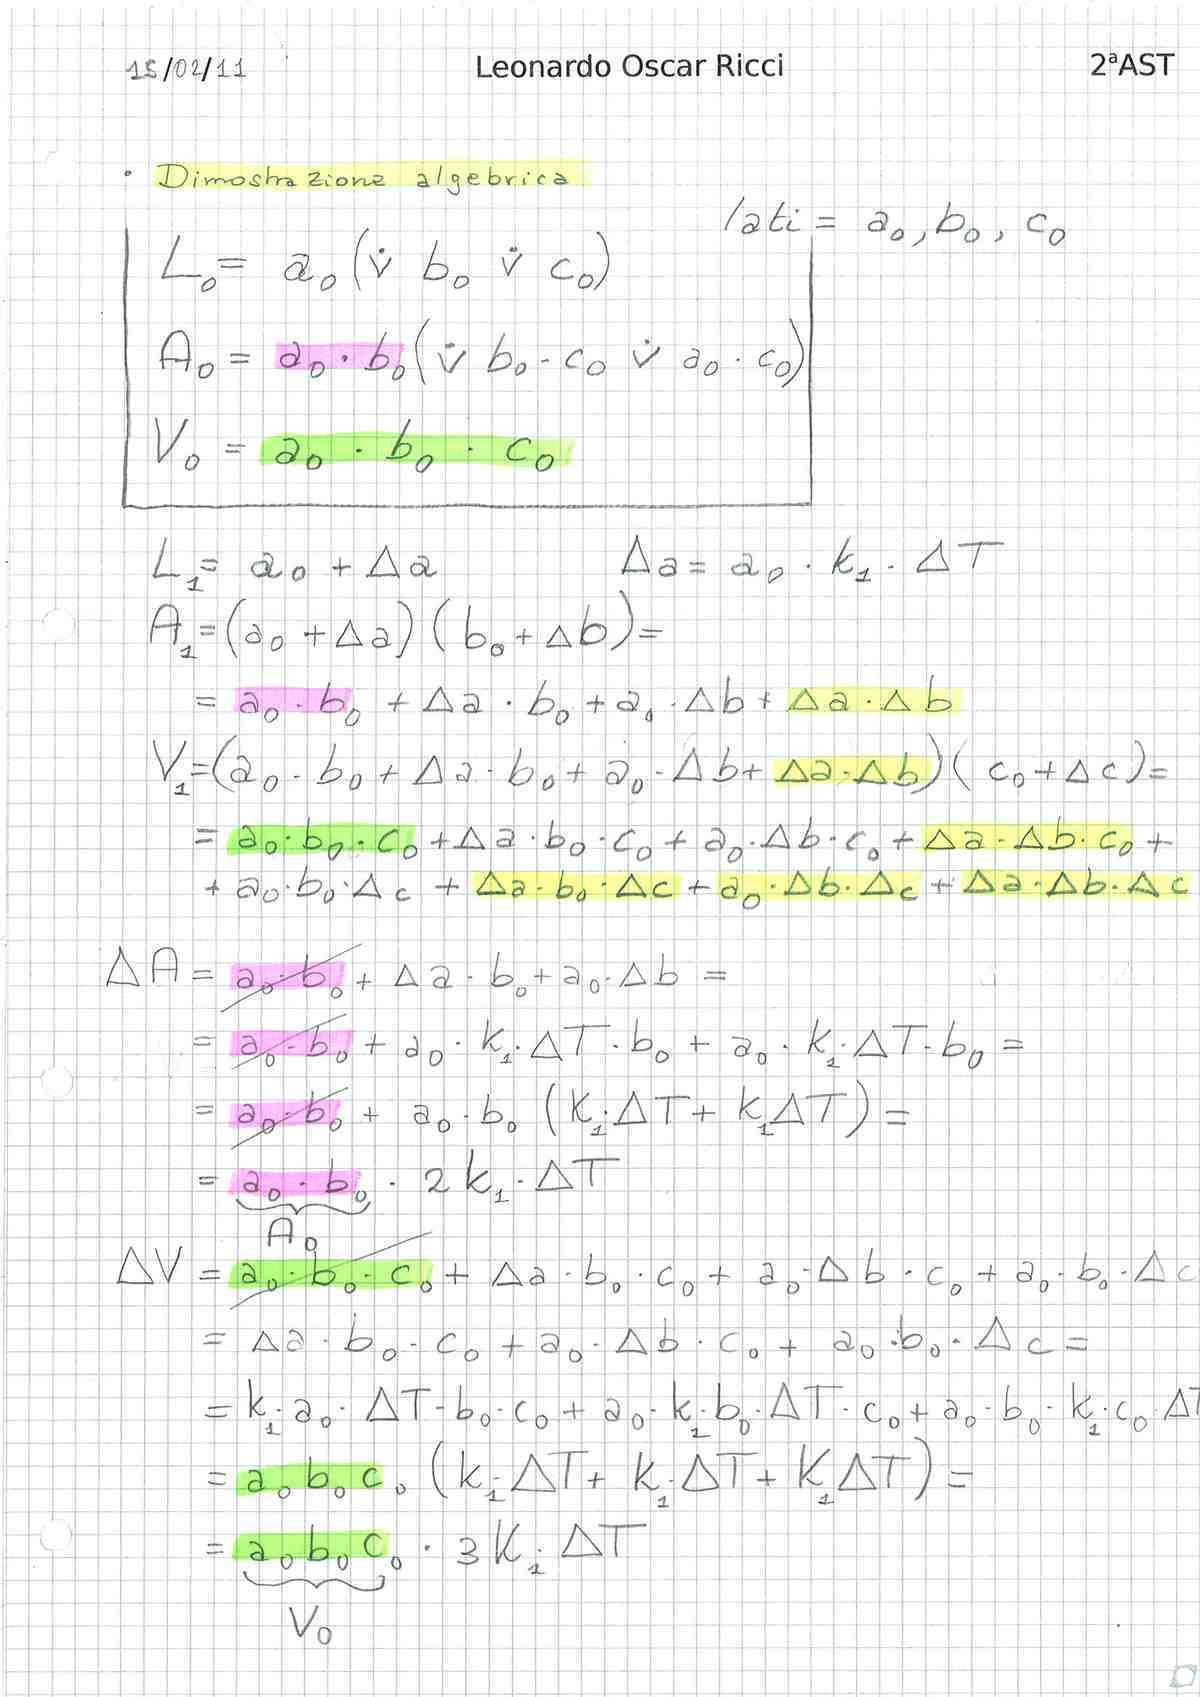 15/02/11 Leonardo Oscar Ricci 2ªAST
• Dimostrazione algebrica
lati = a₀, b₀, c₀
L₀ = a₀ (v̇ b₀ v̇ c₀)
A₀ = a₀ · b₀ (v̇ b₀ · c₀ v̇ a₀ · c₀)
V₀ = a₀ · b₀ · c₀
L₁ = a₀ + Δa Δa = a₀ · k₁ · ΔT
A₁ = (a₀ + Δa) (b₀ + Δb) =
= a₀ · b₀ + Δa · b₀ + a₀ · Δb + Δa · Δb
V₁ = (a₀ · b₀ + Δa · b₀ + a₀ · Δb + Δa · Δb) (c₀ + Δc) =
= a₀ · b₀ · c₀ + Δa · b₀ · c₀ + a₀ · Δb · c₀ + Δa · Δb · c₀ +
+ a₀ · b₀ · Δc + Δa · b₀ · Δc + a₀ · Δb · Δc + Δa · Δb · Δc
ΔA = a₀ · b₀ + Δa · b₀ + a₀ · Δb =
= a₀ · b₀ + a₀ · k₁ · ΔT · b₀ + a₀ · k₁ · ΔT · b₀ =
= a₀ · b₀ + a₀ · b₀ (k₁ · ΔT + k₁ ΔT) =
= a₀ · b₀ · 2 k₁ · ΔT
A₀
ΔV = a₀ · b₀ · c₀ + Δa · b₀ · c₀ + a₀ · Δb · c₀ + a₀ · b₀ · Δc
= Δa · b₀ · c₀ + a₀ · Δb · c₀ + a₀ · b₀ · Δc =
= k₁ · a₀ · ΔT · b₀ · c₀ + a₀ · k₁ · b₀ · ΔT · c₀ + a₀ · b₀ · k₁ · c₀ · ΔT
= a₀ b₀ c₀ (k₁ · ΔT + k₁ · ΔT + K₁ ΔT) =
= a₀ b₀ c₀ · 3 K₁ · ΔT
V₀